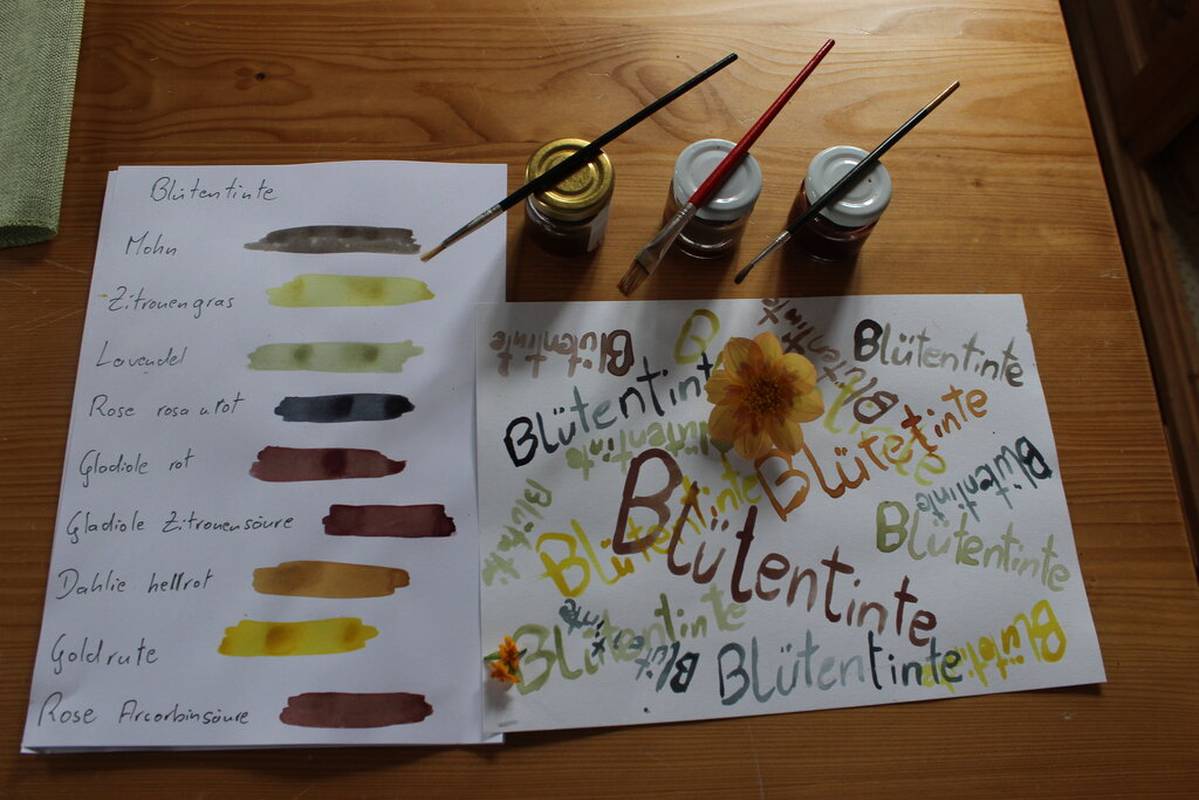 Blütentinte
Mohn
Zitronengras
Lavendel
Rose rosa u rot
Gladiole rot
Gladiole Zitronensäure
Dahlie hellrot
Goldrute
Rose Arcorbinsäure
Blütentinte
B
Blütentinte
Blütentinte
Blütent
Blütentinte
Blütentinte
Blütentinte
Blütentinte
Blütentinte
Blütentinte
Blütentinte
Blütentinte
Blütentinte
Blütentinte